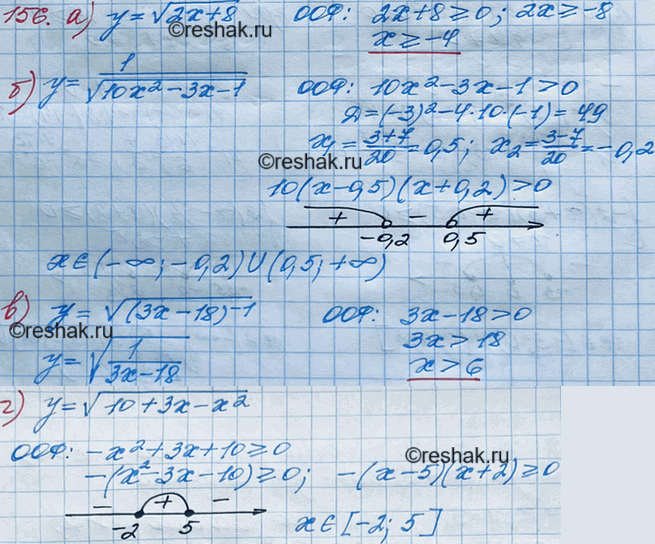 156. а) y = √(2x+8) ООФ: 2x+8 ≥ 0; 2x ≥ -8
x ≥ -4
©reshak.ru
б) y = 1/√(10x² - 3x - 1) ООФ: 10x² - 3x - 1 > 0
Д = (-3)² - 4·10·(-1) = 49
x₁ = (3+7)/20 = 0,5; x₂ = (3-7)/20 = -0,2
©reshak.ru
10(x - 0,5)(x + 0,2) > 0
+ - +
-0,2 0,5
x ∈ (-∞; -0,2) ∪ (0,5; +∞)
в) y = √((3x-18)⁻¹) ООФ: 3x - 18 > 0
©reshak.ru
3x > 18
y = √(1/(3x-18)) x > 6
г) y = √(10 + 3x - x²)
ООФ: -x² + 3x + 10 ≥ 0
©reshak.ru
-(x² - 3x - 10) ≥ 0; -(x-5)(x+2) ≥ 0
- + -
-2 5
x ∈ [-2; 5]